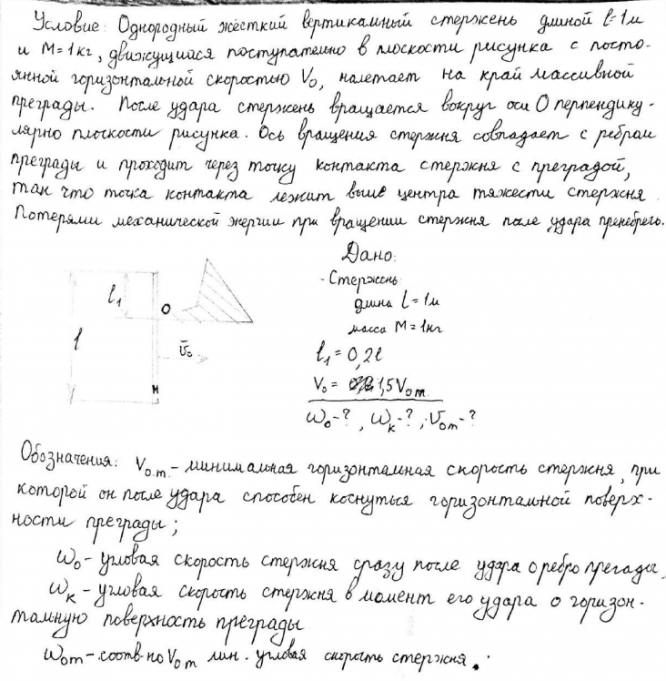 Условие: Однородный жёсткий вертикальный стержень длиной l=1м
и M=1кг, движущийся поступательно в плоскости рисунка с посто-
янной горизонтальной скоростью V₀, налетает на край массивной
преграды. После удара стержень вращается вокруг оси О перпендику-
лярно плоскости рисунка. Ось вращения стержня совпадает с ребром
преграды и проходит через точку контакта стержня с преградой,
так что точка контакта лежит выше центра тяжести стержня.
Потерями механической энергии при вращении стержня после удара пренебречь.
Дано:
- Стержень:
длина l=1м
масса M=1кг
l₁=0,2l
V₀= 1,5V₀m
ω₀-?, ωк-?, V₀m-?
l₁
O
l
V̄₀
M
Обозначения: V₀.m.- минимальная горизонтальная скорость стержня, при
которой он после удара способен коснуться горизонтальной поверх-
ности преграды;
ω₀- угловая скорость стержня сразу после удара о ребро преграды.
ωк- угловая скорость стержня в момент его удара о горизон-
тальную поверхность преграды
ω₀m- соотв-но V₀m мин. угловая скорость стержня.